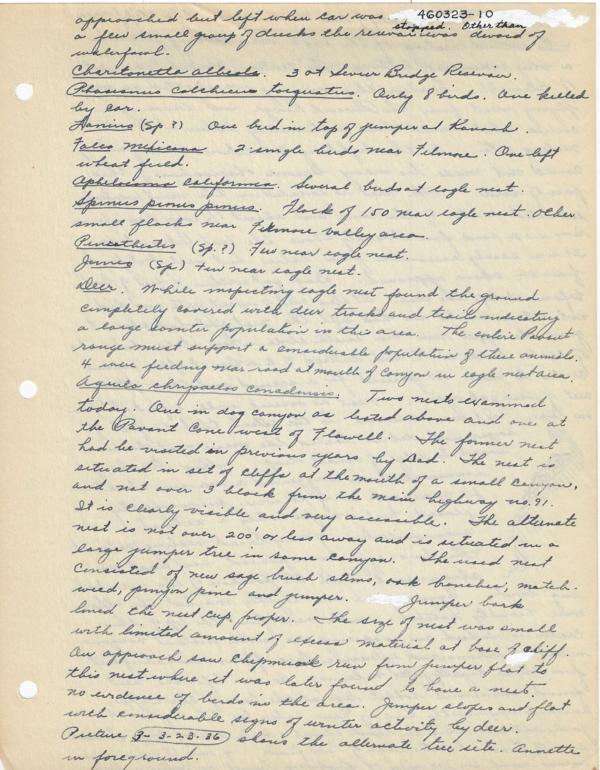 460323-10
approached but left when car was stopped. Other than
a few small group of ducks the reservoir was devoid of
waterfowl.
Charitonetta albeola. 3 at Sevier Bridge Reservoir.
Phasianus colchicus torquatus. Only 8 birds. One killed
by car.
Lanius (Sp?) One bird in top of juniper at Kanosh.
Falco mexicana 2 single birds near Filmore. One left
wheat field.
Aphelocoma californica. Several birds at eagle nest.
Spinus pinus pinus. Flock of 150 near eagle nest. Other
small flocks near Filmore valley area.
Penthestes (Sp.?) Few near eagle nest.
Junco (Sp) Few near eagle nest.
Deer. While inspecting eagle nest found the ground
completely covered with deer tracks and trails indicating
a large winter population in the area. The entire Pavant
range must support a considerable population of these animals.
4 were feeding near road at mouth of Canyon in eagle nest area.
Aquila chrysaetos canadensis. Two nests examined
today. One in dog canyon as listed above and one at
the Pavant Cone west of Flowell. The former nest
had be visited in previous years by Dad. The nest is
situated in set of cliffs at the mouth of a small canyon,
and not over 3 block from the main highway no. 91.
It is clearly visible and very accessible. The alternate
nest is not over 200' or less away and is situated in a
large juniper tree in same canyon. The used nest
consisted of new sage brush stems, oak branches, match-
weed, pinyon pine and juniper. Juniper bark
lined the nest cup proper. The size of nest was small
with limited amount of excess material at base of cliff.
On approach saw chipmunk run from juniper flat to
this nest where it was later found to have a nest.
no evidence of birds in the area. Juniper slopes and flat
with considerable signs of winter activity by deer.
Picture 9-3-23-36 shows the alternate tree site. Annette
in foreground.